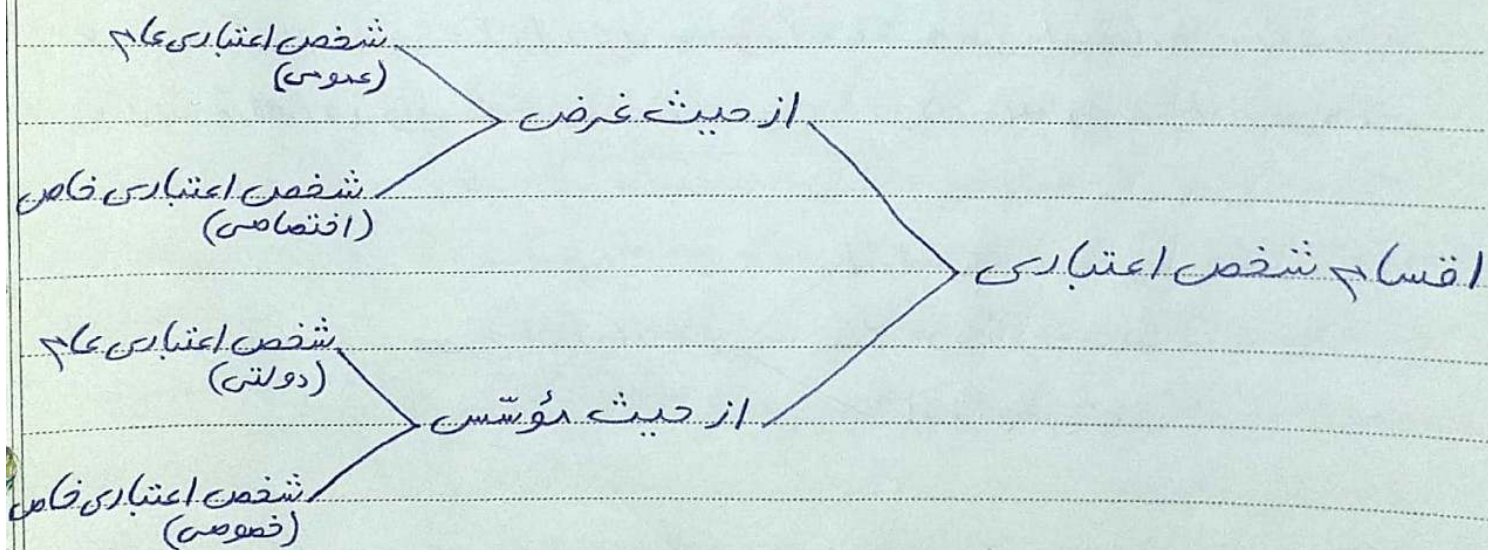 اقسام شخص اعتباری
از حیث غرض
شخص اعتباری عام
(عمومی)
شخص اعتباری خاص
(اختصاصی)
از حیث مؤسّس
شخص اعتباری عام
(دولتی)
شخص اعتباری خاص
(خصوصی)